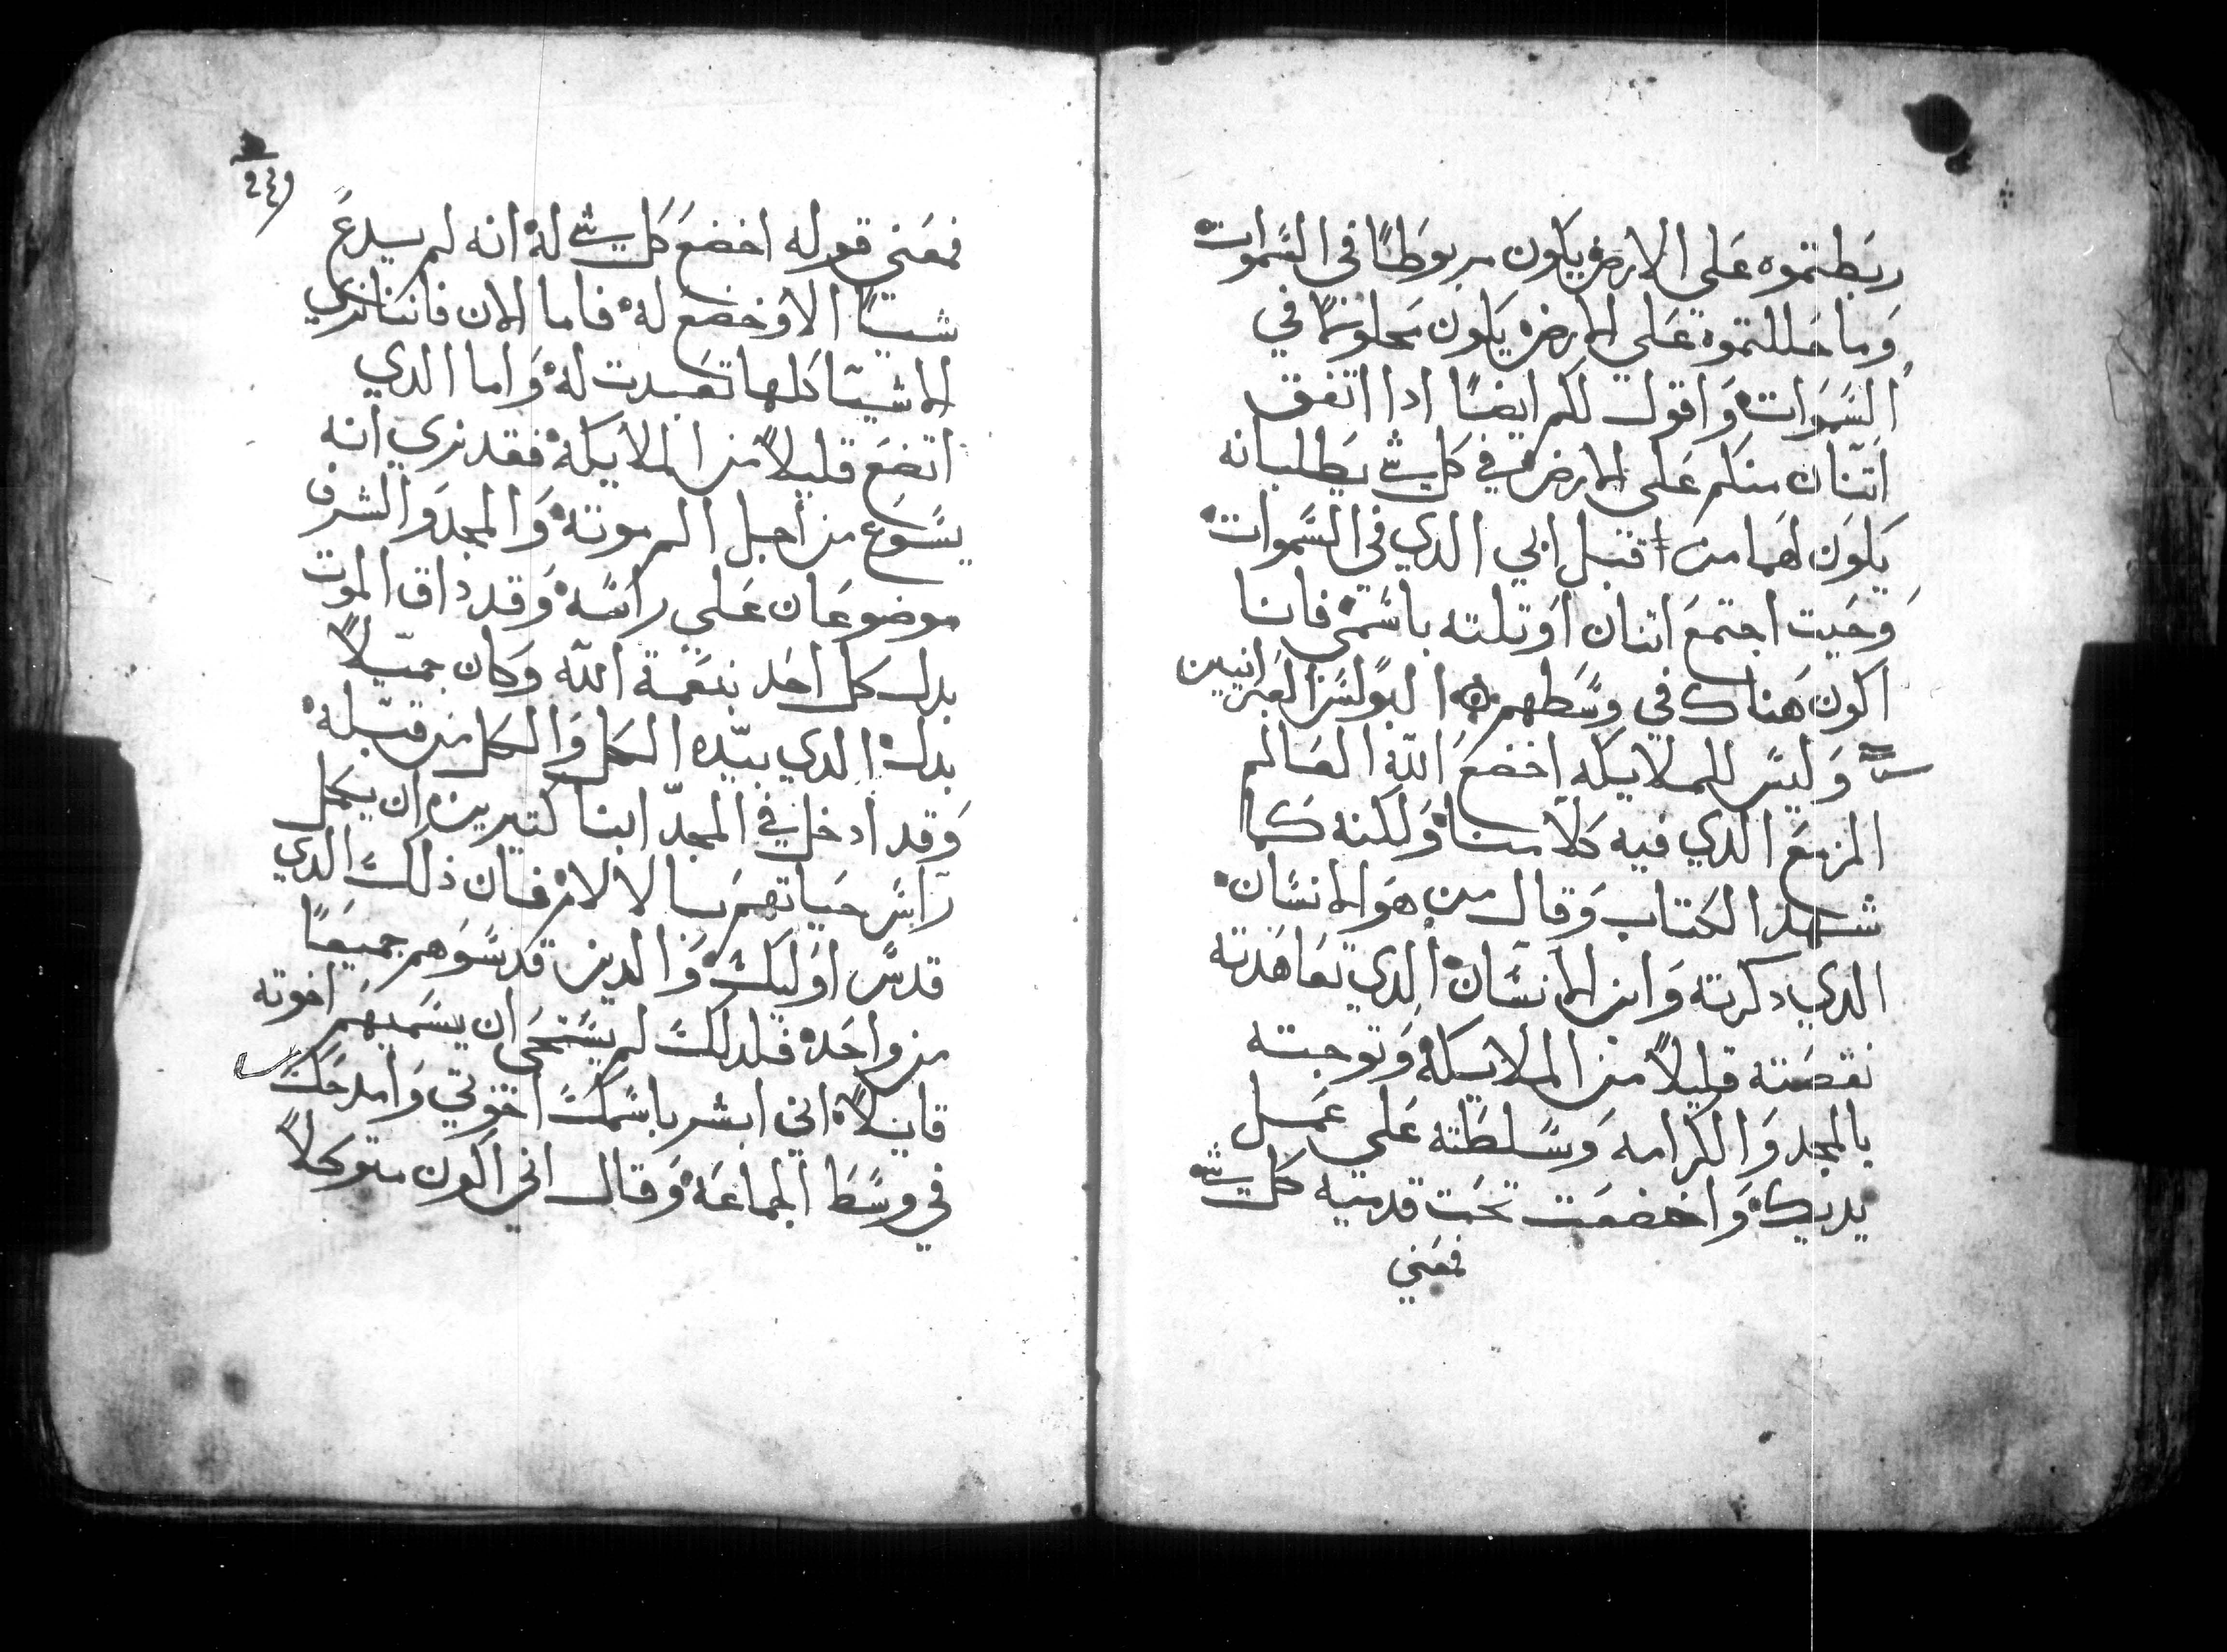 ربَطتموه عَلي الارض يكون مربوطًا في السَّموات
وَما حَللتموه عَلي الارض يكون محلولا في
السَّمَوات وَاقول لكم ايضًا ادا اتفق
اتنان منكم عَلي الارض في كل شي يطلبانه
يَكوَن لهَما من قبل ابي الدي في السَّموات
وَحَيت اجتمَع اتنان اوَتلته باسَمي فانا
اكون هَناك في وسَطهم البولسَ العَبرانيين
وَليسَ للملايكه اخضعَ الله العَالم
المزمَع الدي فيه كلامنا وَلكنه كما
شهَد الكتاب وَقال من هوَ الانسَان
الدي دكرته وَابن الانسَان الدي تعَاهَدته
نقصَته قليلاً من الملايكة وَتوجته
بالمجد وَالكرامه وَسَلطَته عَلي عَمل
يديك وَاخضعَت تحَت قدميه كل شي
فمعَني
٢٤٩
فمعَني قوله اخضعَ كل شي له انه لم يدعَ
شيًا الا وخضعَ له فاما الان فاننا نري
الاشيا كلها تعَبدت له وَاما الدي
اتضعَ قليلاً من الملايكة فقد نري انه
يسَوع من اجل الم موته وَالمجد وَالشرف
موضوعَان عَلي راسَه وَقد داق الموت
بدل كل احَد بنعَمة الله وَكان جميلاً
بدلك الدي بيده الكل وَالكل من قبله
وَقد ادخل في المجد ابنا كتيرين ان يكمل
راسَ حيَاتهم بالالام فان ذلك الدي
قدسَ اوليك وَالدين قدسَوهم جميعًا
من واحَد فلدلك لم يسَتحَي ان يسَميهم اخوته
قايلاً اني ابشر باسَمك اخوتي وَامدحَك
في وسَط الجماعَة وَقال اني اكون متوكلاً